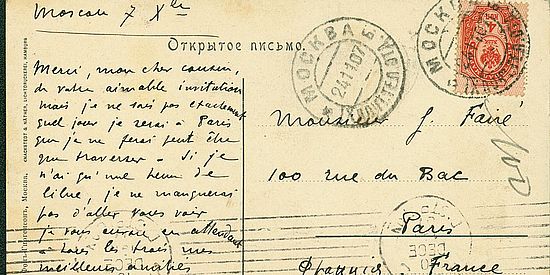 Moscou 7 Xbre
Открытое письмо.
МОСКВА
24 11 07
МОСКВА
Merci, mon cher cousin,
de votre aimable invitation
mais je ne sais pas exactement
quel jour je serai à Paris
que je ne ferai peut être
que traverser - Si je
n'ai qu'une heure de
libre, je ne manquerai
pas d'aller vous voir
je vous envoie en attendant
à tous les trois mes
meilleures amitiés
Monsieur J. Faivé
100 rue du Bac
Paris
Франція France
KNACKSTEDT & NÄTHER, LICHTDRUCKEREI, HAMBURG